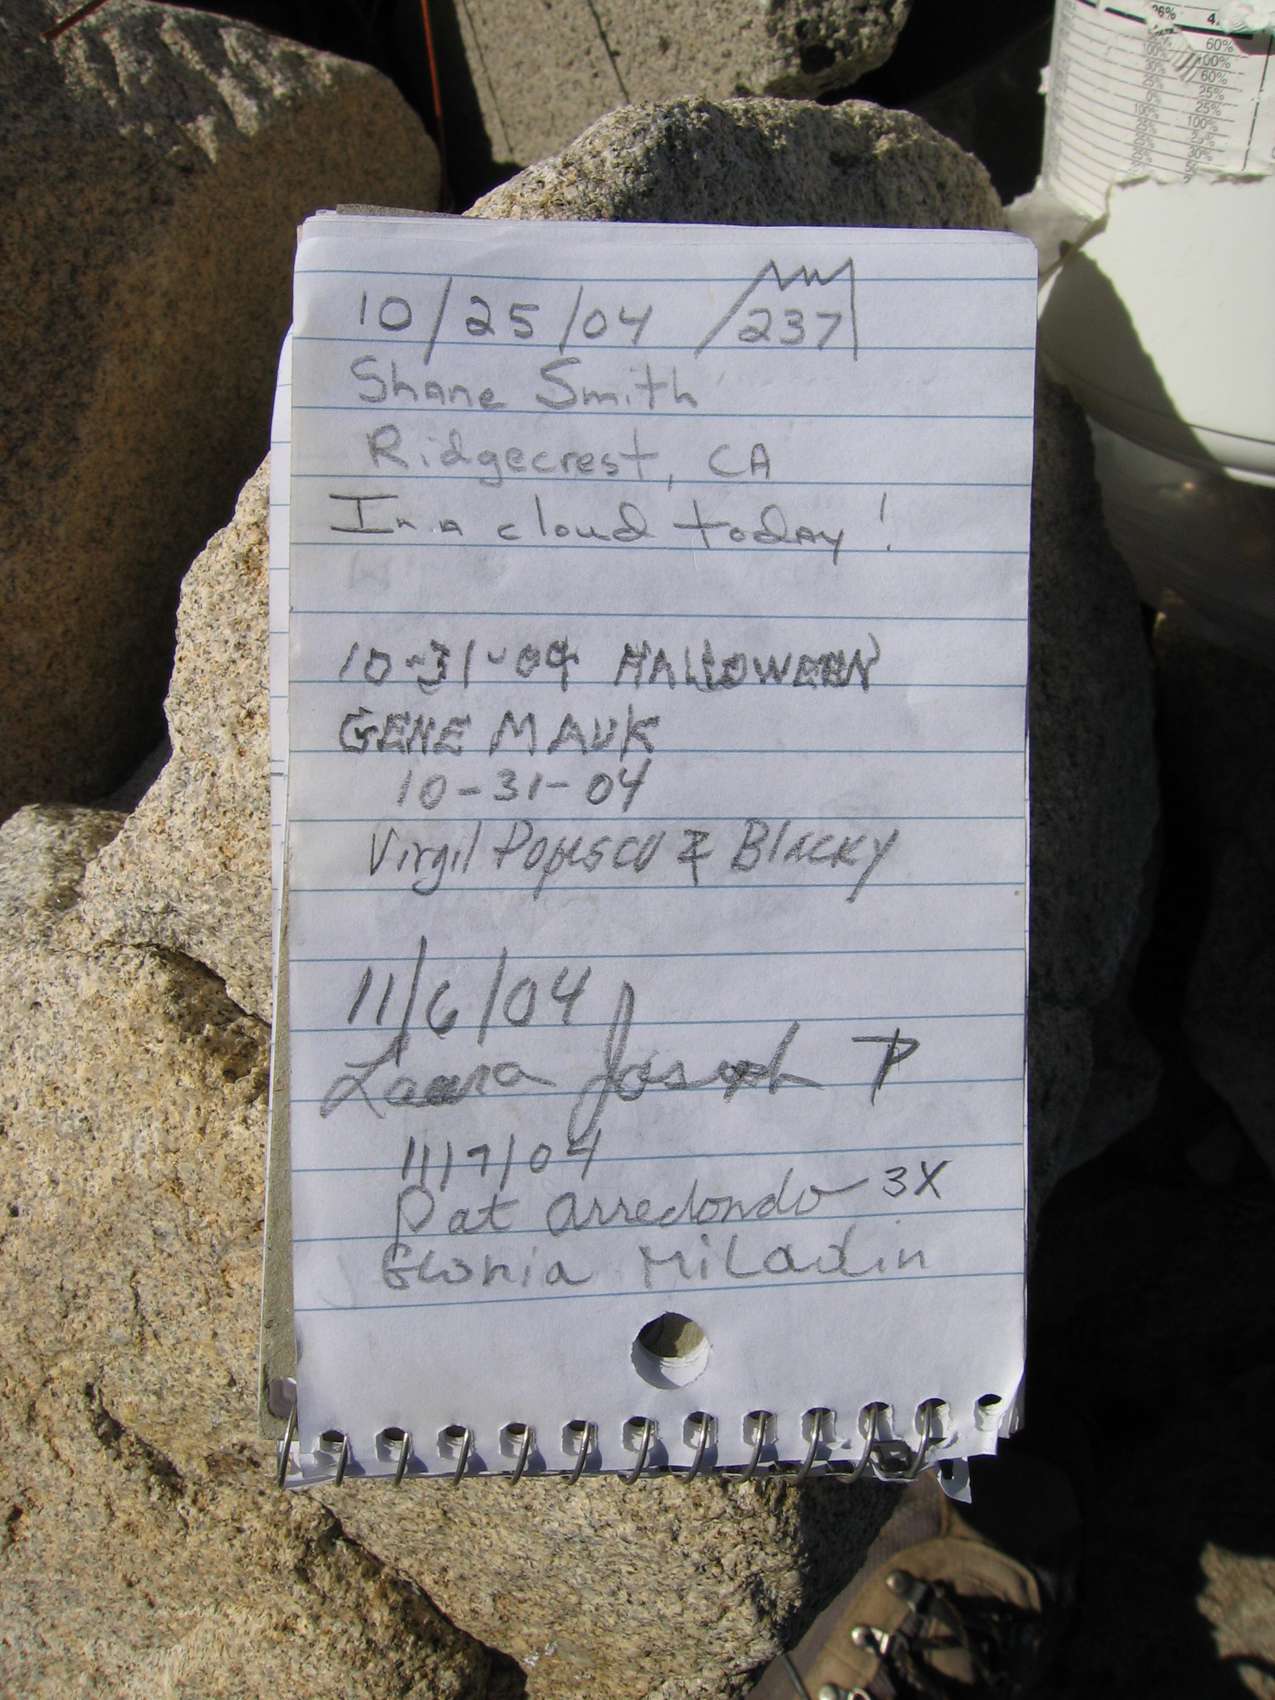 26% 4.
60%
100%
60%
25%
25%
100%
10/25/04 237
Shane Smith
Ridgecrest, CA
In a cloud today!
10-31-04 HALLOWEEN
GENE MAUK
10-31-04
Virgil Popescu & Blacky
11/6/04
Laura Joseph P
11/7/04
Pat Arredondo 3X
Gloria Miladin